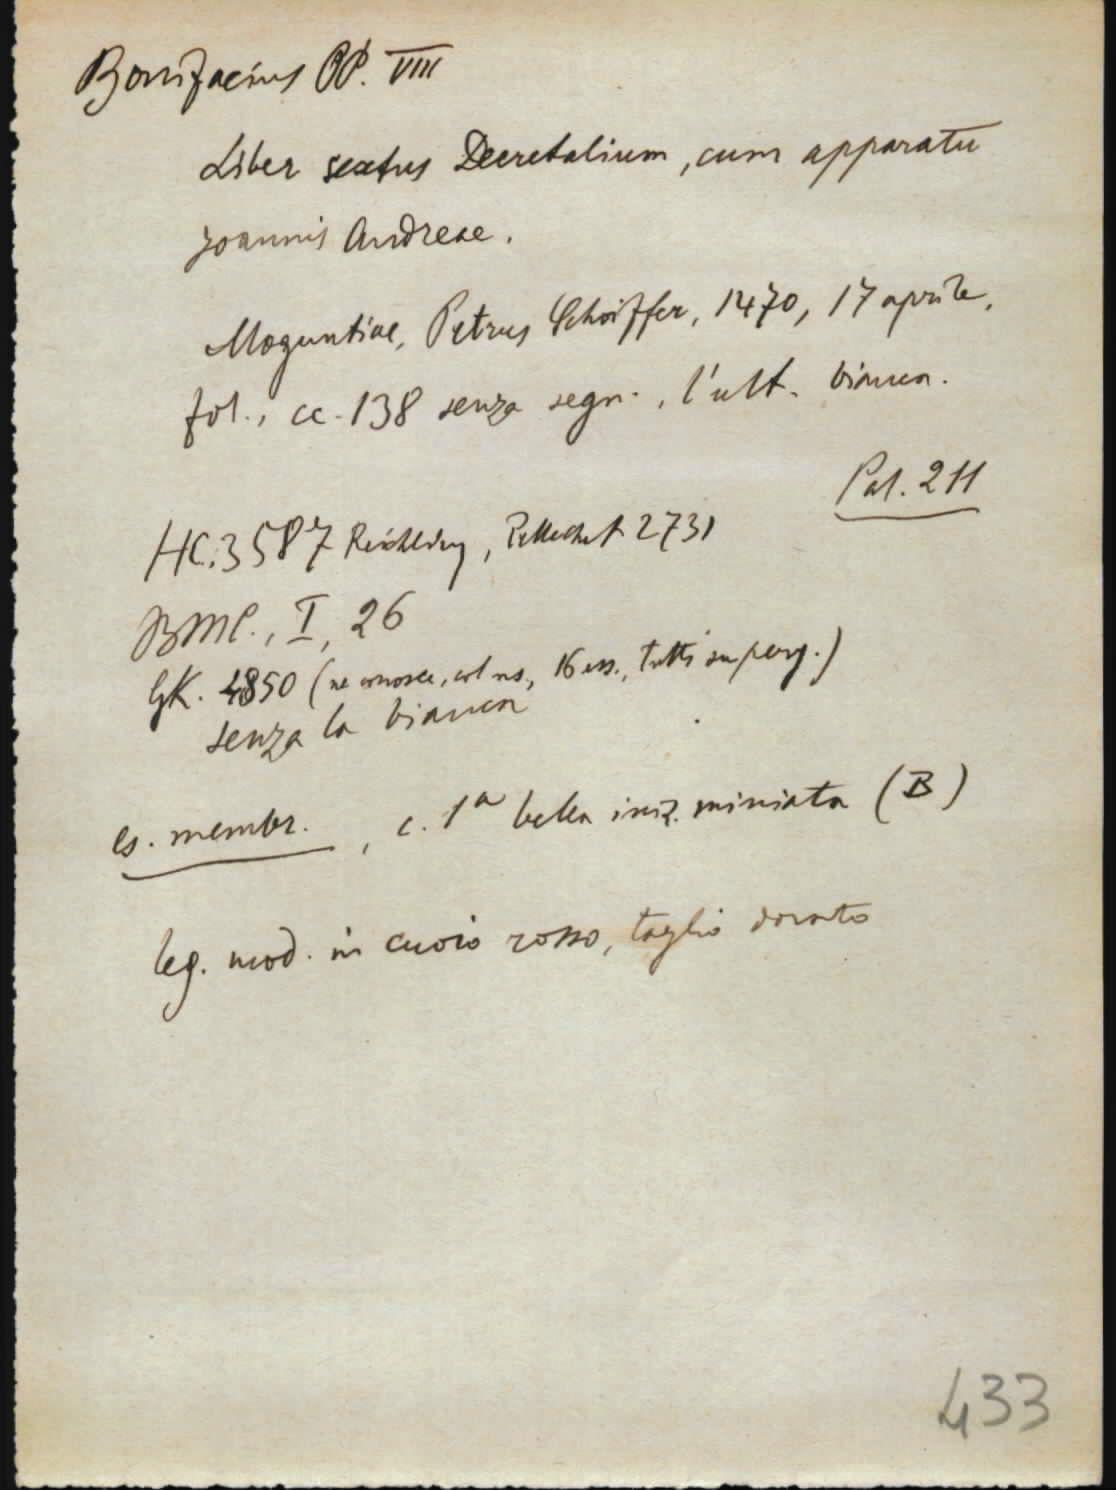 Bonifacius PP. VIII
Liber sextus Decretalium, cum apparatu
Joannis Andreae.
Moguntiae, Petrus Schoiffer, 1470, 17 aprile.
fol., cc. 138 senza segn., l'ult. bianca.
Pal. 211
HC. 3587 Reichling, Pellechet 2731
BMC., I, 26
GK. 4850 (ne conosce, col ns., 16 es., tutti su perg.)
senza la bianca
es. membr., c. 1a bella iniz. miniata (B)
leg. mod. in cuoio rosso, taglio dorato
433